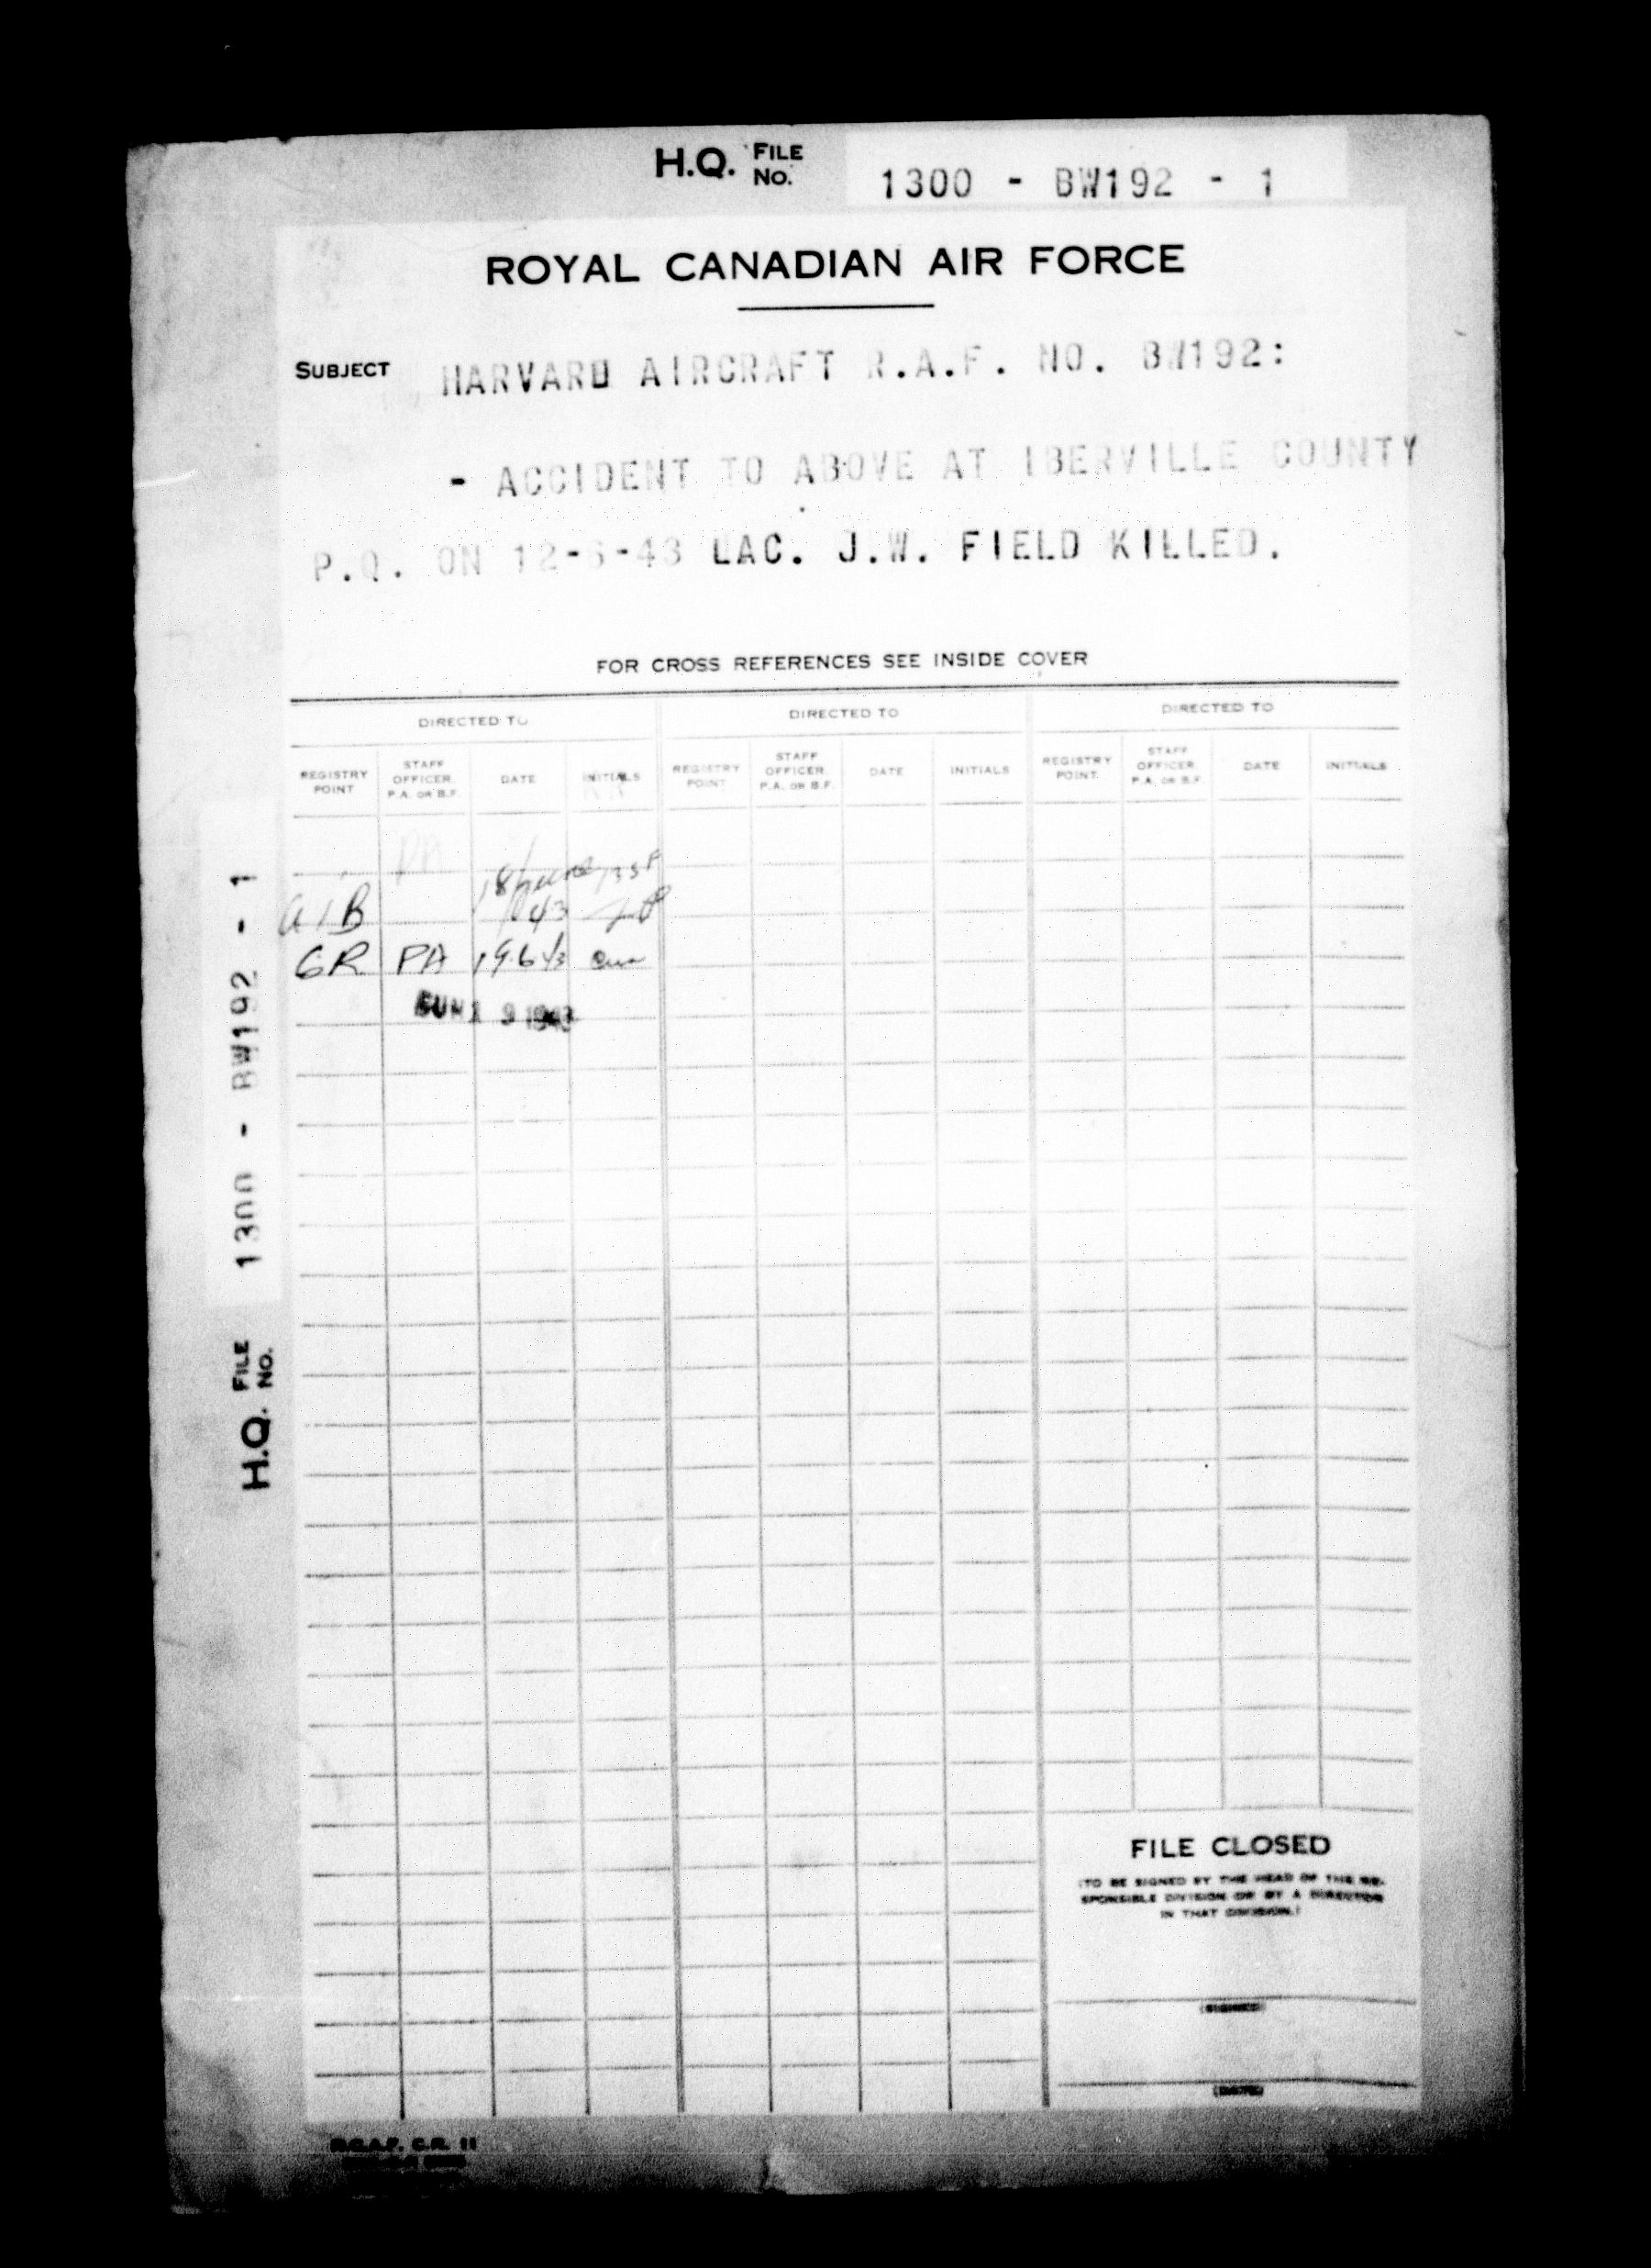 H.Q. FILE No. 1300 - BW192 - 1
ROYAL CANADIAN AIR FORCE
SUBJECT HARVARD AIRCRAFT R.A.F. NO. BW192:
- ACCIDENT TO ABOVE AT IBERVILLE COUNTY
P.Q. ON 12-6-43 LAC. J.W. FIELD KILLED.
FOR CROSS REFERENCES SEE INSIDE COVER
DIRECTED TO DIRECTED TO DIRECTED TO
REGISTRY POINT STAFF OFFICER P.A. OR B.F. DATE INITIALS REGISTRY POINT STAFF OFFICER P.A. OR B.F. DATE INITIALS REGISTRY POINT STAFF OFFICER P.A. OR B.F. DATE INITIALS
PA
18/June
AIB 43
CR PA 19.6.43
JUN 19 1943
H.Q. FILE No. 1300 - BW192 - 1
FILE CLOSED
(TO BE SIGNED BY THE HEAD OF THE RE-
SPONSIBLE DIVISION OR BY A DIRECTOR
IN THAT DIVISION.)
(SIGNED)
(DATE)
R.C.A.F. C.R. 11